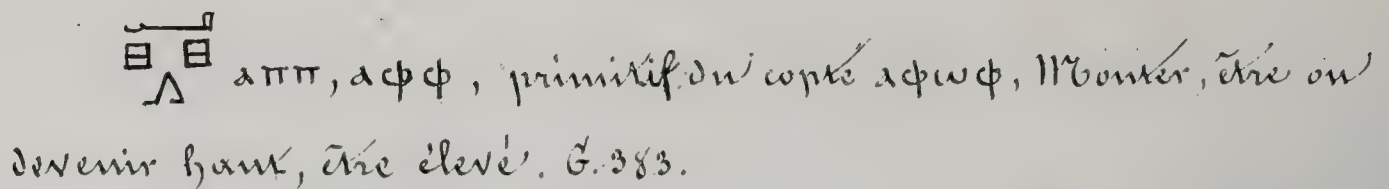 ⲁⲡⲡ, ⲁⲫⲫ, primitif du copte ⲁⲫⲱⲫ, Monter, être ou
devenir haut, être élevé. G. 383.